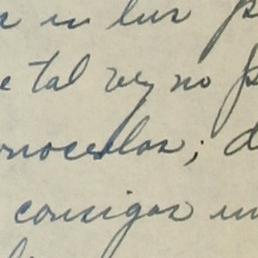 en luz p
e tal vez no p
onocerlos; d
consigas un